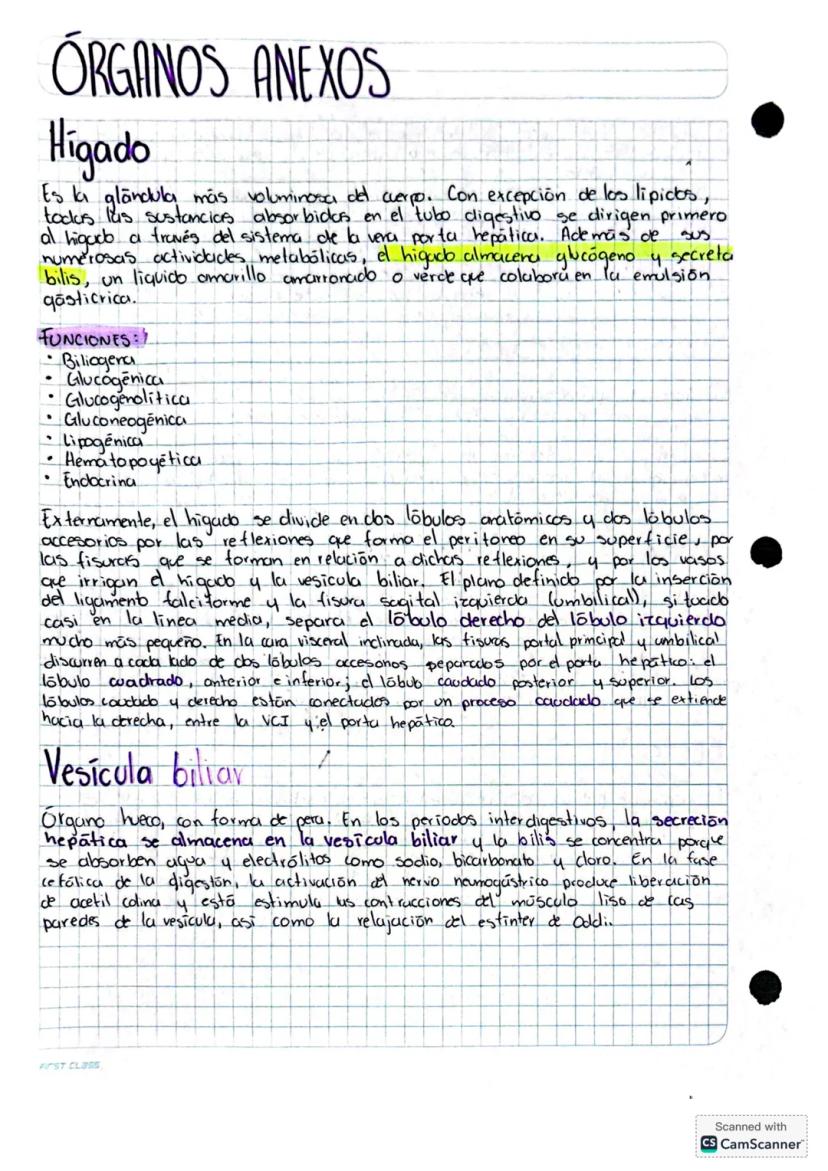 ÓRGANOS ANEXOS
Hígado
Es la glándula más voluminosa del cuerpo. Con excepción de los lípidos,
todas las sustancias absorbidas en el tubo digestivo se dirigen primero
al hígado a través del sistema de la vena porta hepática. Además de sus
numerosas actividades metabólicas, el hígado almacena glucógeno y secreta
bilis, un líquido amarillo amarronado o verde que colabora en la emulsión
gásticrica.
FUNCIONES:
• Biliogena
• Glucogénica
• Glucogenolítica
• Gluconeogénica
• Lipogénica
• Hematopoyética
• Endocrina
Externamente, el hígado se divide en dos lóbulos anatómicos y dos lóbulos
accesorios por las reflexiones que forma el peritoneo en su superficie, por
las fisuras que se forman en relación a dichas reflexiones, y por los vasos
que irrigan el hígado y la vesícula biliar. El plano definido por la inserción
del ligamento falciforme y la fisura sagital izquierda (umbilical), situado
casi en la línea media, separa el lóbulo derecho del lóbulo izquierdo
mucho más pequeño. En la cara visceral inclinada, las fisuras portal principal y umbilical
discurren a cada lado de dos lóbulos accesorios separados por el porta hepático: el
lóbulo cuadrado, anterior e inferior; el lóbulo caudado posterior y superior. Los
lóbulos caudado y derecho están conectados por un proceso caudado que se extiende
hacia la derecha, entre la VCI y el porta hepático.
Vesícula biliar
Órgano hueco, con forma de pera. En los períodos interdigestivos, la secreción
hepática se almacena en la vesícula biliar y la bilis se concentra porque
se absorben agua y electrólitos como sodio, bicarbonato y cloro. En la fase
cefálica de la digestón, la activación del nervio neumogástrico produce liberación
de acetil colina y está estimula las contracciones del músculo liso de las
paredes de la vesícula, así como la relajación del esfínter de Oddi.
FIRST CLASS
Scanned with
CS CamScanner